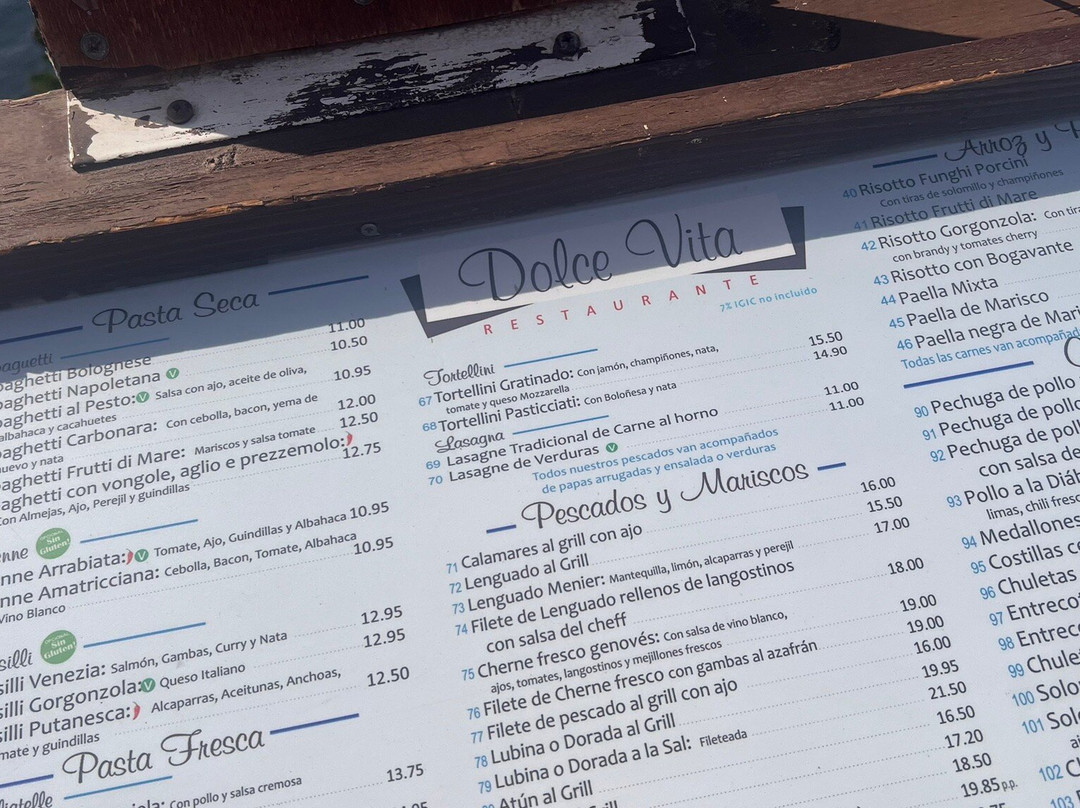 Pasta Seca
paguetti
paghetti Bolognese 11.00
paghetti Napoletana V 10.50
paghetti al Pesto: V Salsa con ajo, aceite de oliva,
albahaca y cacahuetes 10.95
paghetti Carbonara: Con cebolla, bacon, yema de
huevo y nata 12.00
paghetti Frutti di Mare: Mariscos y salsa tomate 12.50
paghetti con vongole, aglio e prezzemolo: 12.75
Con Almejas, Ajo, Perejil y guindillas
nne Sin Gluten!
nne Arrabiata: V Tomate, Ajo, Guindillas y Albahaca 10.95
nne Amatricciana: Cebolla, Bacon, Tomate, Albahaca 10.95
Vino Blanco
silli Sin Gluten!
silli Venezia: Salmón, Gambas, Curry y Nata 12.95
silli Gorgonzola: V Queso Italiano 12.95
silli Putanesca: Alcaparras, Aceitunas, Anchoas, 12.50
mate y guindillas
Pasta Fresca
liatelle
iola: Con pollo y salsa cremosa 13.75
Dolce Vita
RESTAURANTE
7% IGIC no incluido
Tortellini
67 Tortellini Gratinado: Con jamón, champiñones, nata, 15.50
tomate y queso Mozzarella
68 Tortellini Pasticciati: Con Boloñesa y nata 14.90
Lasagna
69 Lasagne Tradicional de Carne al horno 11.00
70 Lasagne de Verduras V 11.00
Todos nuestros pescados van acompañados
de papas arrugadas y ensalada o verduras
Pescados y Mariscos
71 Calamares al grill con ajo 16.00
72 Lenguado al Grill 15.50
73 Lenguado Menier: Mantequilla, limón, alcaparras y perejil 17.00
74 Filete de Lenguado rellenos de langostinos
con salsa del cheff 18.00
75 Cherne fresco genovés: Con salsa de vino blanco,
ajos, tomates, langostinos y mejillones frescos 19.00
76 Filete de Cherne fresco con gambas al azafrán 19.00
77 Filete de pescado al grill con ajo 16.00
78 Lubina o Dorada al Grill 19.95
79 Lubina o Dorada a la Sal: Fileteada 21.50
Atún al Grill 16.50
17.20
18.50
19.85 p.p.
Arroz y
40 Risotto Funghi Porcini
Con tiras de solomillo y champiñones
41 Risotto Frutti di Mare
42 Risotto Gorgonzola: Con
con brandy y tomates cherry
43 Risotto con Bogavante
44 Paella Mixta
45 Paella de Marisco
46 Paella negra de
Todas las carnes van
90 Pechuga de pollo
91 Pechuga de pollo
92 Pechuga de
con salsa de
93 Pollo a la
limas, chili
94 Medallones
95 Costillas
96 Chuletas
97
98
99
100
101
102
103